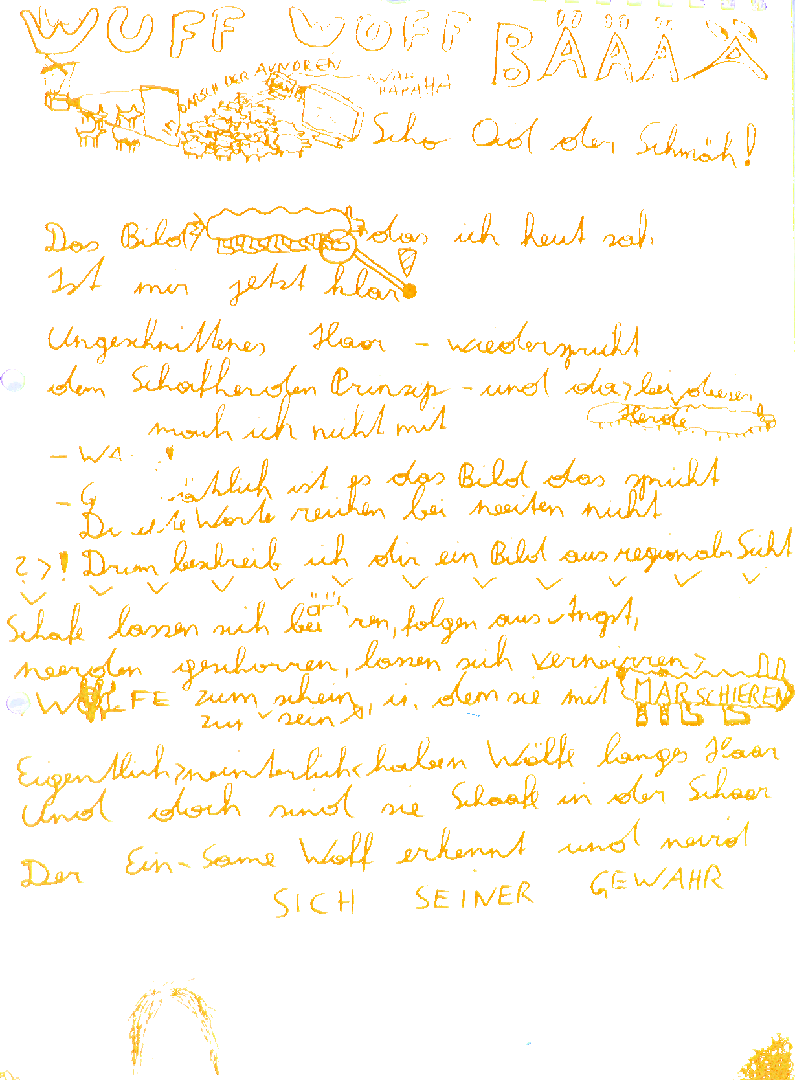 WUFF WOFF BÄÄÄÄ
DER ANDOREN
HAHAHA
Scho Oid der Schmäh!
Das Bild das ich heut sah
Ist mir jetzt klar
Ungeschnittenes Haar - wiederspricht
dem Schafherden Prinzip - und da > bei dieser
Herde
mach ich nicht mit
- WA
ist es das Bild das spricht
Worte reichen bei weiten nicht
? > ! Drum beschreib ich dir ein Bild aus regionaler Sicht
Schafe lassen sich bei ren, folgen aus Angst,
är
werden geschorren, lassen sich verwirren >
WÖLFE zum schein, in dem sie mit MARSCHIEREN
zur sein
Eigentlich > winterlich < haben Wölfe langes Haar
Und doch sind sie Schaafe in der Schaar
Der Ein-Same Wolf erkennt und wird
SICH SEINER GEWAHR